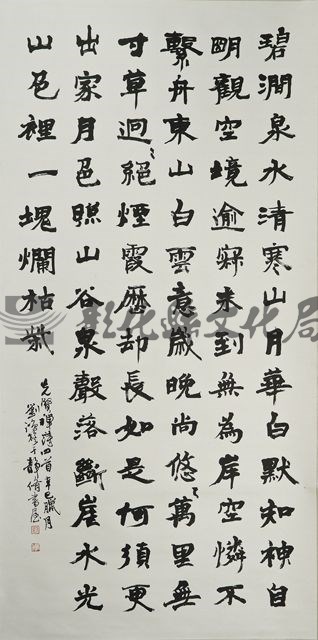 碧澗泉水清寒山月華白默知神自
明觀空境逾寂未到無為岸空憐不
繫舟東山白雲意歲晚尚悠〻萬里無
寸草迥〻絕煙霞歷劫長如是何須更
出家月色聯山谷泉聲落斷崖水光
山色裡一塊爛枯柴
先賢禪詩四首辛巳臘月
書屋
彰化縣文化局